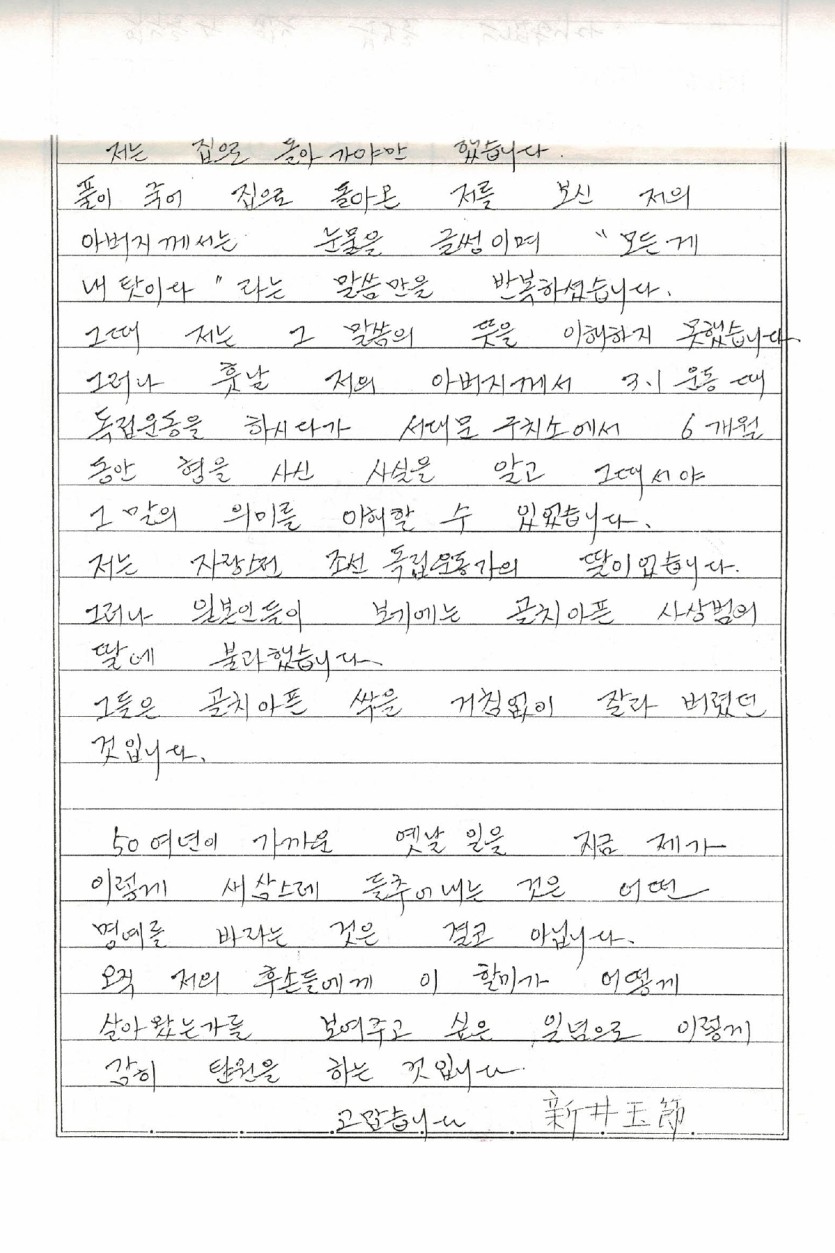 저는 집으로 돌아 가야만 했습니다.
풀이 죽어 집으로 돌아온 저를 보신 저의
아버지께서는 눈물을 글썽이며 "모든게
내 탓이다" 라는 말씀만을 반복하셨습니다.
그때 저는 그 말씀의 뜻을 이해하지 못했습니다
그러나 훗날 저의 아버지께서 3.1 운동 때
독립운동을 하시다가 서대문 구치소에서 6개월
동안 형을 사신 사실을 알고 그때서야
그 말의 의미를 이해할 수 있었습니다.
저는 자랑스런 조선 독립운동가의 딸이었습니다.
그러나 일본인들이 보기에는 골치아픈 사상범의
딸에 불과했습니다.
그들은 골치아픈 싹을 거침없이 잘라 버렸던
것입니다.
50여년이 가까운 옛날 일을 지금 제가
이렇게 새삼스레 들추어내는 것은 어떤
명예를 바라는 것은 결코 아닙니다.
오직 저의 후손들에게 이 할미가 어떻게
살아왔는가를 보여주고 싶은 일념으로 이렇게
감히 탄원을 하는 것입니다.
고맙습니다 新井玉節